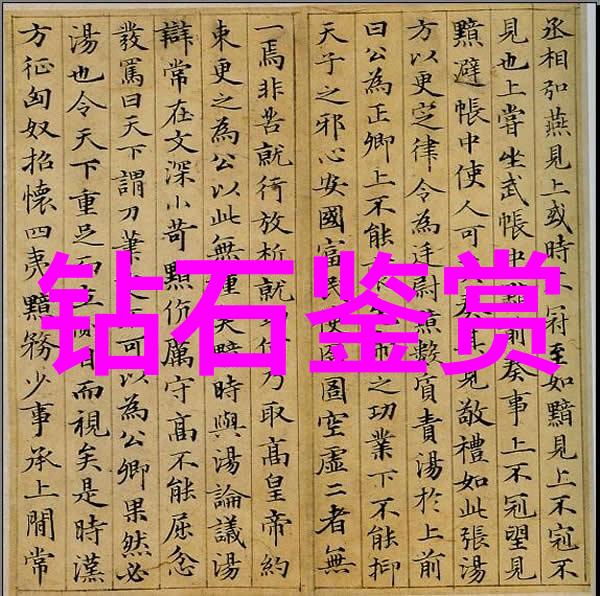 丞相弘燕見上或時冠至如黯見上不冠不
見也上嘗坐武帳中前奏事上不冠望見
黯避帳中使人可奏其見敬禮如此張湯
方以更定律令為廷尉黯數質責湯於上前
曰公為正卿上不能之功業下不能抑
天子之邪心安國富民使囹圄空虛二者無
一焉非苦就行放析就乃取高皇帝約
束更之為公以此無種矣黯時與湯論議湯
辯常在文深小苛黯伉厲守高不能屈忿
發罵曰天下謂刀筆可以為公卿果然必
湯也令天下重足而立目而視矣是時漢
方征匈奴招懷四夷黯務少事承上間常
钻石鉴赏